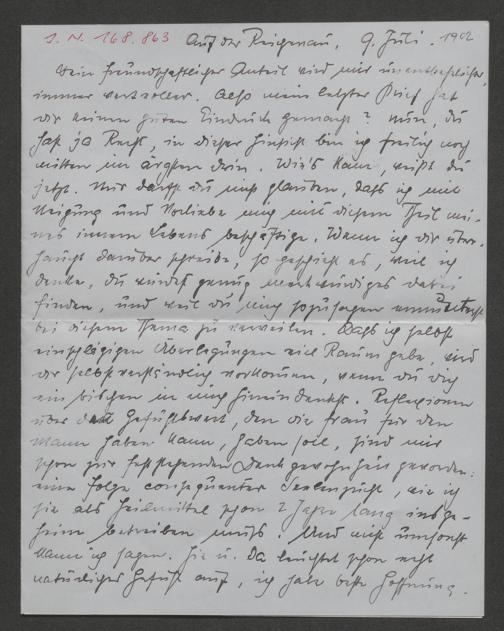 I. N. 168.863 Auf der Reigenau, 9. Juli. 1902
Dein freundschaftlicher Anteil wird mir unentbehrlicher,
immer wertvoller. Also mein letzter Brief hat
dir keinen guten Eindruck gemacht? Nun, du
hast ja Recht, in dieser Hinsicht bin ich freilich noch
mitten im ärgsten drin. Wie's kam, weißt du
jetzt. Nur darfst du nicht glauben, daß ich mit
Neigung und Vorliebe mich mit diesem Theil mei-
nes innern Lebens beschäftige. Wenn ich dir über-
haupt darüber schreibe, so geschieht es, weil ich
denke, du würdest genug merkwürdiges dabei
finden, und weil du mich sozusagen ermuntertest
bei diesem Thema zu verweilen. Daß ich selbst
einschlägigen Überlegungen viel Raum gebe, wird
dir selbstverständlich vorkommen, wenn du dich
ein bischen in mich hineindenkst. Reflexionen
über den Gefühlswert, den die Frau für den
Mann haben kann, haben soll, sind mir
schon zur feststehenden Denkgewohnheit geworden:
eine Folge consequenter Seelenzucht, wie ich
sie als Heilmittel schon 2 Jahre lang insge-
heim betreiben muß. Und nicht umsonst
kann ich sagen. Hie u. da leuchtet schon recht
natürliches Gefühl auf, ich habe beste Hoffnung.